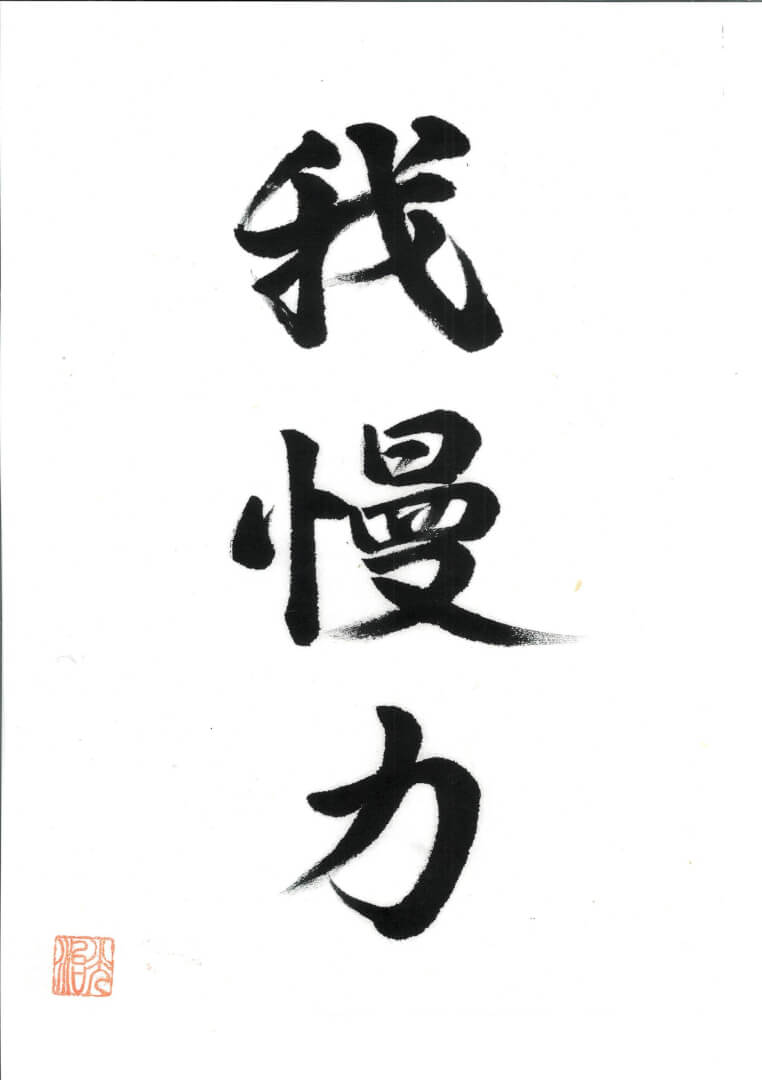 我慢力